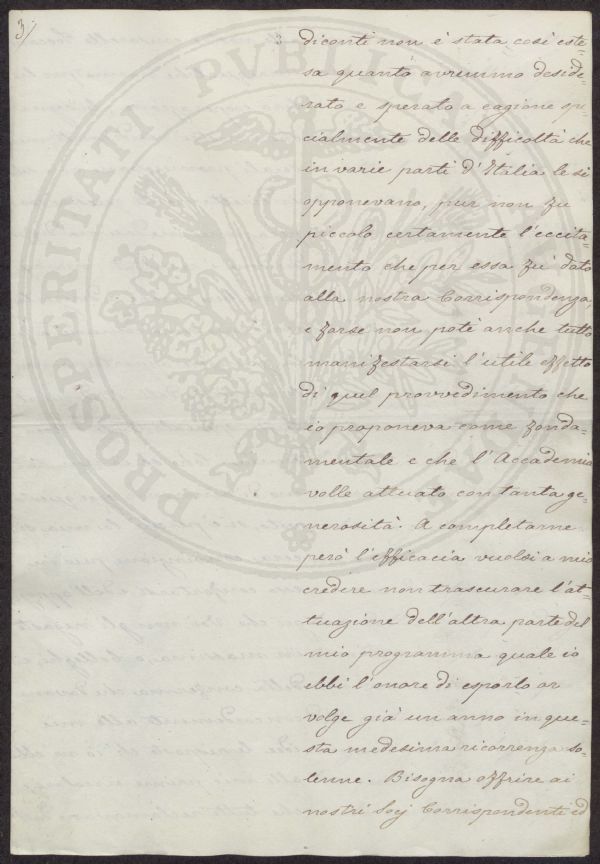 3/
diconti non è stata così este-
sa quanto avremmo deside-
rato e sperato a cagione spe-
cialmente delle difficoltà che
in varie parti d'Italia le si
opponevano, pur non fu
piccolo certamente l'eccita-
mento che per essa fu dato
alla nostra Corrispondenza,
e forse non potè anche tutto
manifestarsi l'utile effetto
di quel provvedimento che
io proponeva come fonda-
mentale e che l'Accademia
volle attuato con tanta ge-
nerosità. A completarne
però l'efficacia vuolsi a mio
credere non trascurare l'at-
tuazione dell'altra parte del
mio programma quale io
ebbi l'onore di esporlo or
volge già un anno in que-
sta medesima ricorrenza so-
lenne. Bisogna offrire ai
nostri Socj Corrispondenti ed
PROSPERITATI PVBLICAE